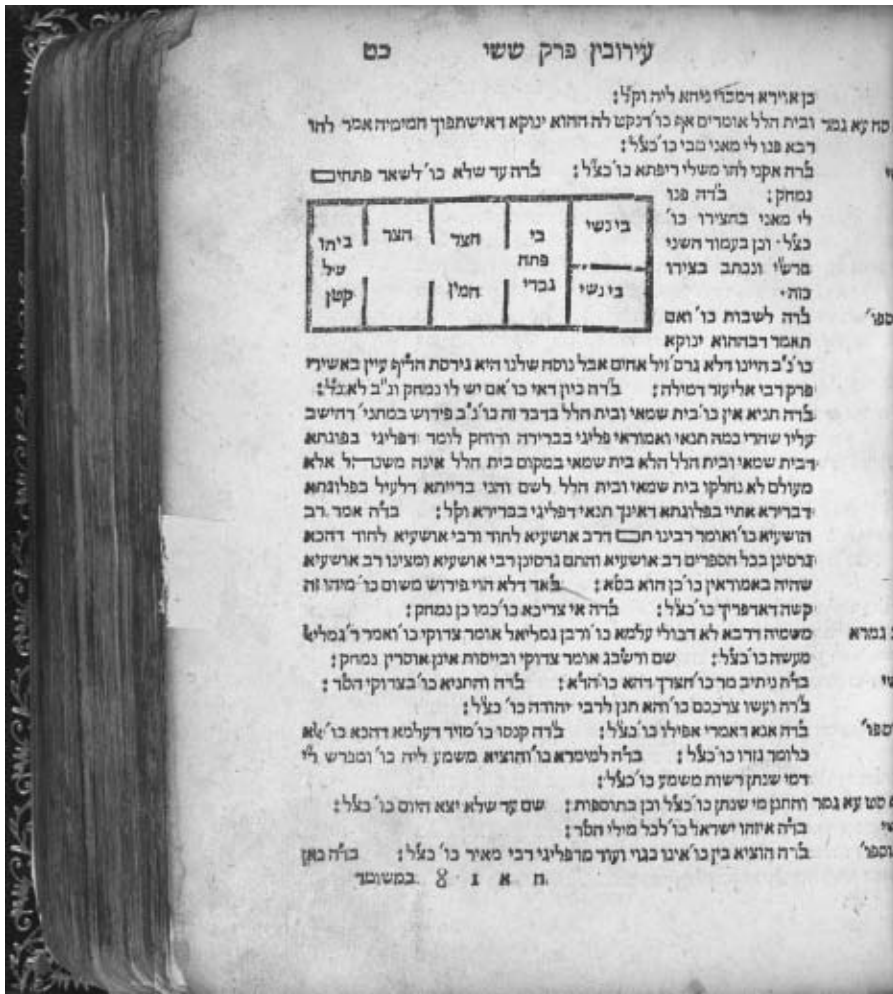 עירובין פרק ששי כט
כן אוירא דמברי ניחא ליה וקל:
סח עא גמר ובית הלל אומרים אף כו' דנקט לה ההוא ינוקא דאישתפוך חמימיה אמר להו
רבא פנו לי מאני מבי כו' כצל:
בד״ה אקני להו משלי ריפתא כו' כצל: בד״ה עד שלא כו' לשאר פתחים
נמחק: בד״ה פנו
לי מאני בחצירו כו'
כצל· וכן בעמוד השני
ברש״י ונכתב בצידו
כזה·
ספו' בד״ה לשבות כו' ואם
תאמר דבההוא ינוקא
בי נשי
בי נשי
בי
פתח
גברי
חצר
חמין
הצר
ביתו
של
קטן
כו' נ״ב היינו דלא גרס אחים אבל נוסח שלנו היא גירסת הריף עיין באשירי
פרק רבי אליעזר דמילה: בד״ה כיון דאי כו' אם יש לו נמחק ונ״ב לא
בד״ה תניא אין כו' בית שמאי ובית הלל בדבר זה כו' נ״ב פירוש במתני' דהישב
עליו שהרי כמה תנאי ואמוראי פליגי בברירה ודוחק לומר דפליגי בפוגתא
דבית שמאי ובית הלל הלא בית שמאי במקום בית הלל אינה משנה אלא
מעולם לא נחלקו בית שמאי ובית הלל לשם והני ברייתא דלעיל בפלוגתא
דברירא אתיי בפלוגתא דאינך תנאי דפליגי בברירא וקל: בד״ה אמר רב
הושעיא כו' ואומר רבינו תם דרב אושעיא לחוד ורבי אושעיא לחוד דהכא
גרסינן בכל הספרים רב אושעיא והתם גרסינן רבי אושעיא ומצינו רב אושעיא
שהיה באמוראין כו' כן הוא בסא: באד דלא הוי פירוש משום כו' מיהו זה
קשה דאדפריך כו' כצל: בד״ה אי צריכא כו' כמו כן נמחק:
גמרא משמיה דרבא לא דבולי עלמא כו' ורבן גמליאל אומר צדוקי כו' ואמר ר' גמליא
מעשה כו' כצל: שם ורשבג אומר צדוקי ובייסות אינן אוסרין נמחק:
בד״ה ניתיב מר כו' חצרך דהא כו' הדא: בד״ה והתניא כו' בצדוקי הסר:
בד״ה ועשו צרכבם כו' והא תנן לרבי יהודה כו' כצל:
ספו' בד״ה אנא דאמרי אפילו כו' כצל: בד״ה קנסו כו' מזיד דעלמא דהכא כו'
כלומר גזרו כו' כצל: בד״ה למימרא כו' והוציא משמע ליה כו' ומפרש
דמי שנתן רשות משמע כו' כצל:
סט עא גמר והתנן מי שנתן כו' כצל וכן בתוספות: שם עד שלא יצא היום כו' כצל:
בד״ה איזהו ישראל כו' לכל מילי הסר:
וספו' בד״ה הוציא בין כו' אינו כגוי ועוד מדפליגי רבי מאיר כו' כצל: בד״ה כאן
ח א ג 8 במשומד